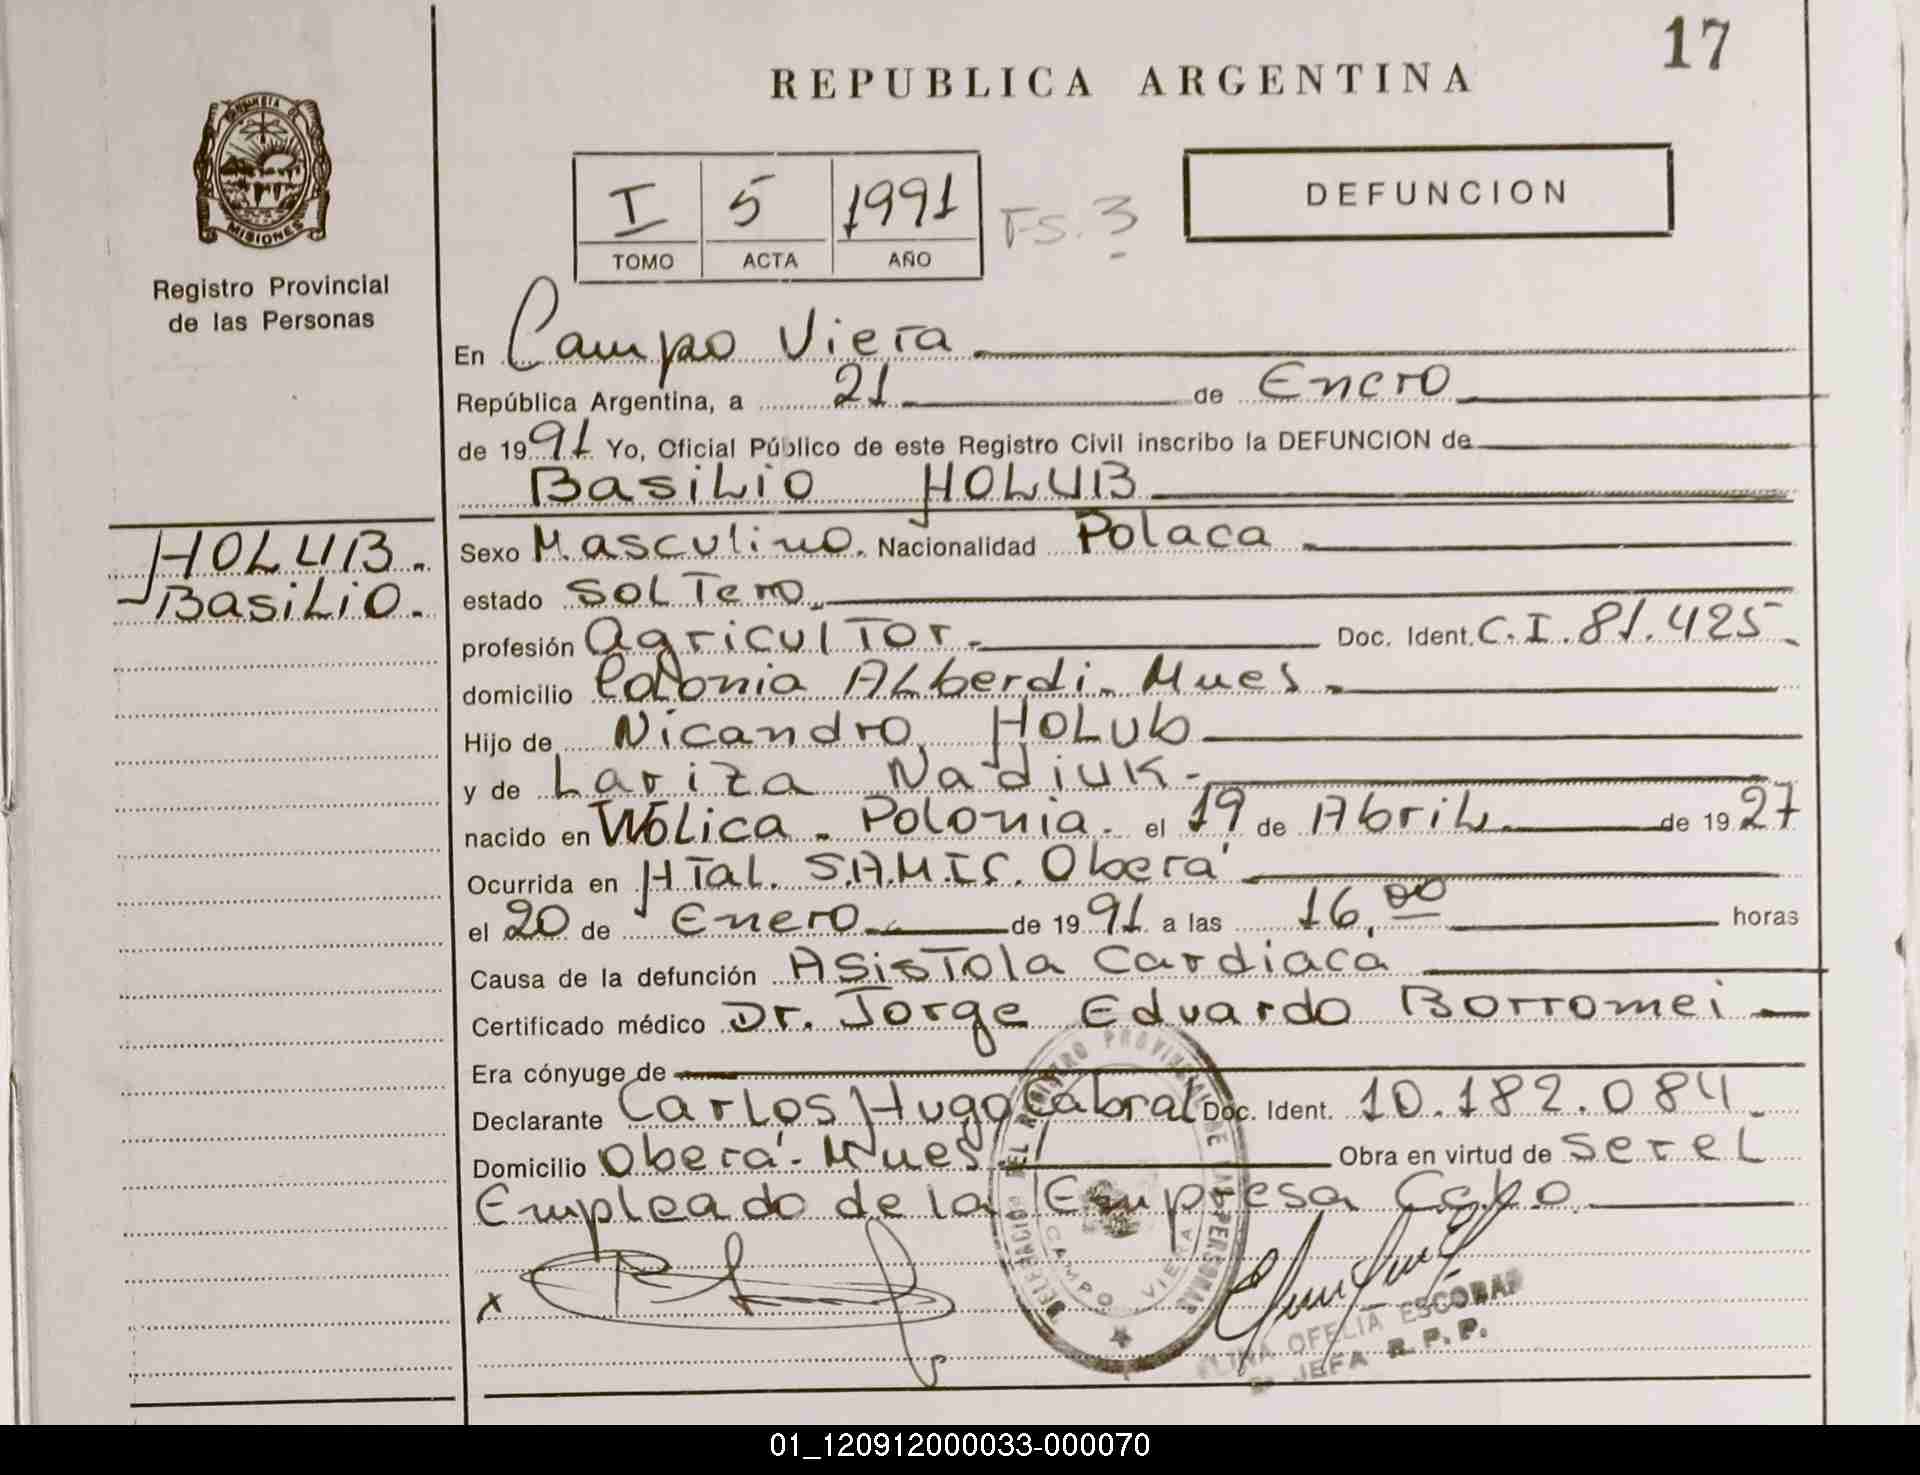 17
REPUBLICA ARGENTINA
PROVINCIA DE
MISIONES
Registro Provincial
de las Personas
I 5 1991 Fs. 3
TOMO ACTA AÑO
DEFUNCION
En Campo Viera
República Argentina, a 21 de Enero
de 1991 Yo, Oficial Público de este Registro Civil inscribo la DEFUNCION de
Basilio HOLUB
HOLUB.
Basilio.
Sexo Masculino. Nacionalidad Polaca
estado SolTero
profesión AgriculTor. Doc. Ident. C.I. 81.425
domicilio Colonia Alberdi. Mnes.
Hijo de Nicandro HoLub
y de Lariza Nadiuk
nacido en Wólica - Polonia. el 19 de Abril de 1927
Ocurrida en HTal. S.A.M.I.C. Oberá
el 20 de Enero de 1991 a las 16,00 horas
Causa de la defunción AsisTola Cardiaca
Certificado médico Dr. Jorge Eduardo Borromei
Era cónyuge de
Declarante Carlos Hugo Cabral Doc. Ident. 10.182.084
Domicilio Oberá - Mnes Obra en virtud de ser el
Empleado de la Empresa Celo
x
DELEGACION DEL REGISTRO PROVINCIAL DE LAS PERSONAS
CAMPO VIERA
OFELIA ESCOBAR
JEFA R.P.P.
01_120912000033-000070